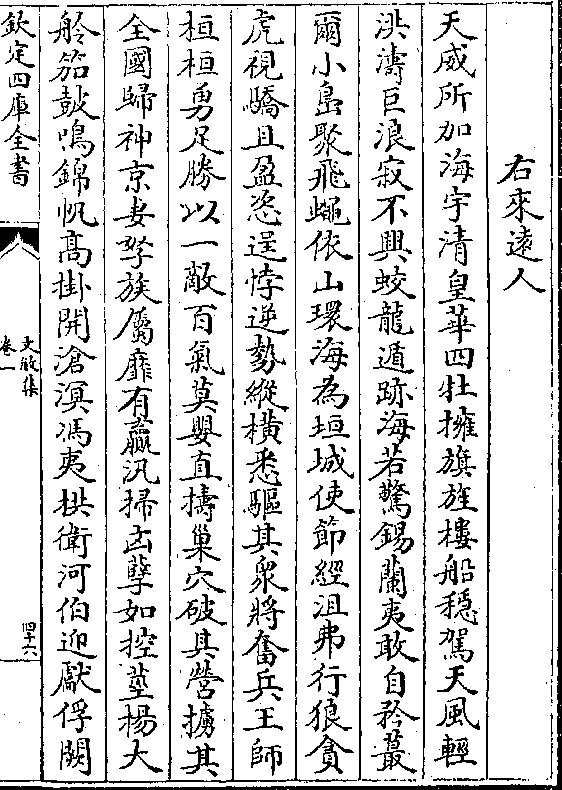 右來遠人
天威所加海宇清皇華四牡擁旗旌樓船穏駕天風輕
洪濤巨浪寂不興蛟龍遁跡海若驚錫蘭夷敢自矜蕞
爾小島聚飛蠅依山環海為垣城使節經沮弗行狼貪
虎視驕且盈恣逞悖逆勢縱横悉驅其衆將奮兵王師
桓桓勇足勝以一敵百氣莫嬰直擣巢穴破其營擄其
全國歸神京妻孥族屬靡有贏汎掃凶孽如控莛楊大
舲笳鼓鳴錦帆高掛開滄溟馮夷拱衛河伯迎獻俘闕
欽定四庫全書
文敏集
卷一
四十六